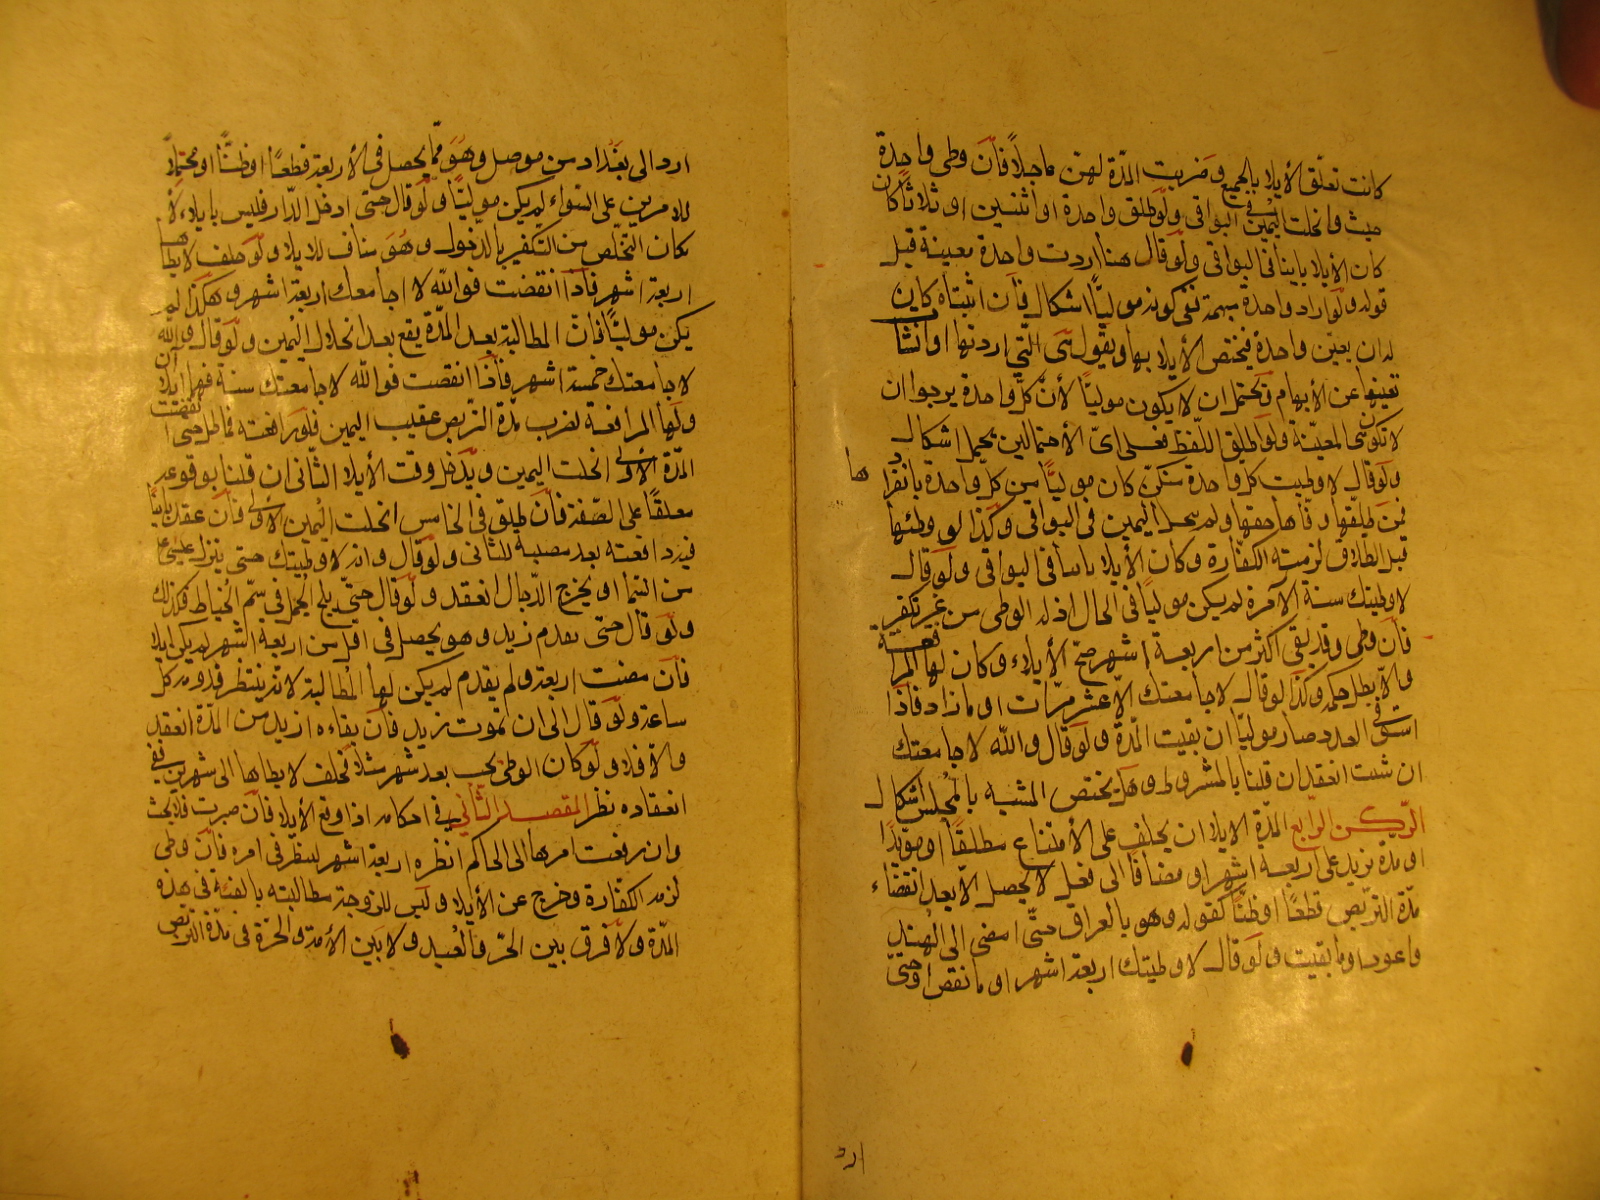 كانت تعلق الأيلا بالجميع وضربت المدّة لهن عاجلاً فان وطى واحدة
حيث وانحلت اليمين في البواقي ولو طلق واحدة او اثنتين او ثلاثاً كان
كان الأيلا باينا فى البواقي ولو قال هنا اردت واحدة معينة قبل
قوله ولو اراد واحدة مبهمة ففي كونه موليّاً اشكال فان اثبتناه كان
له ان يعيّن واحدة فيختص الأيلا بها ويقول هي التي اردتها او انشأ
تعينها عن الأبهام وتحتمل ان لا يكون مولياً لأن كل واحدة يرجوا ان
لا تكون هي المعيّنة ولو اطلق اللفظ فعلى اىّ الأحتمالين يحمل اشكال
ولو قال لا وطيت كل واحدة منكنّ كان مولياً من كل واحدة بانفرادها
فمن طلقها وفّاها حقها ولم ينحل اليمين فى البواقى وكذا لو وطئها
قبل الطلاق لزمته الكفارة وكان الأيلا باقيا فى البواقى ولو قال
لا وطيتك سنة الا مرة لم يكن مولياً فى الحال اذ له الوطى من غير تكفير
فان وطى وقد بقى اكثر من اربعة اشهر صح الأيلاء وكان لها المرافعة
والاّ بطل حكمه وكذا لو قال لا جامعتك الاّ عشر مرّات او ما زاد فاذا
استوفى العدد صار مولياً ان بقيت المدّة ولو قال والله لا جامعتك
ان شئت انعقد ان قلنا بالمشروط وهل يختص المشية بالمجلس اشكال
الرّكن الرّابع المدّة الايلا ان يحلف على الأمتناع مطلقاً او مؤبّداً
او مدّة تزيد على اربعة اشهر او مضافاً الى فعل لا يحصل الاّ بعد انقضاء
مدّة التربّص قطعاً او ظنّاً كقوله وهو بالعراق حتّى امضى الى الهند
واعود او ما بقيت ولو قال لا وطيتك اربعة اشهر او ما نقص او حتىّ
ارد
ارد الى بغداد من موصل وهو ممّا يحصل فى الأربعة قطعاً او ظنّاً او محتملاً
للامرين على السّواء لم يكن مولياً ولو قال حتى ادخل الدّار فليس بايلاء لأ
مكان التخلّص من التكفير بالدخول وهو مناف للايلا ولو حلف لا يطاها
اربعة اشهر فاذا انقضت فوالله لا اجامعك اربعة اشهر وهكذا لم
يكن مولياً فان المطالبة بعد المدّة يقع بعد انحلال اليمين ولو قال والله
لا جامعتك خمسة اشهر فاذا انقضت فوالله لا جامعتك سنة فهما ايلاآن
ولها المرافعة لضرب مدّة التربص عقيب اليمين فلو رافعته فماطل حتى انقضت
المدّة الأولى انحلت اليمين ويدخل وقت الأيلا الثّانى ان قلنا بوقوعه
معلقاً على الصّفة فان طلق فى الخامس انحلت اليمين الأولى فان عقد ثانياً
فيرافعته بعد مضيه للثانى ولو قال والله لا وطيتك حتى ينزل عيسى ع
من السّما او يخرج الدّجال انعقد ولو قال حتىّ يلج الجمل فى سمّ الخياط فكذلك
ولو قال حتى يقدم زيد وهو يحصل فى اقل من اربعة اشهر لم يكن ايلا
فان مضت اربعة ولم يقدم لم يكن لها المطالبة لانّه ينتظر قدومه كل
ساعة ولو قال الى ان تموت زيد فان بقاءه ازيد من المدّة انعقد
والاّ فلا ولو كان الوطى يجب بعد شهر مثلاً فحلف لا يطاها الى شهرين ففي
انعقاده نظر المقصد الثّانى فى احكامه اذا وقع الأيلا فان صبرت فلا بحث
وان رفعت امرها الى الحاكم انظره اربعة اشهر لينظر فى امره فان وطى
لزمه الكفّارة وخرج عن الأيلا وليس للزوجة مطالبته بالفئة فى هذه
المدّة ولا فرق بين الحرّ والعبد ولا بين الأمة والحرّة فى مدّة التربّص